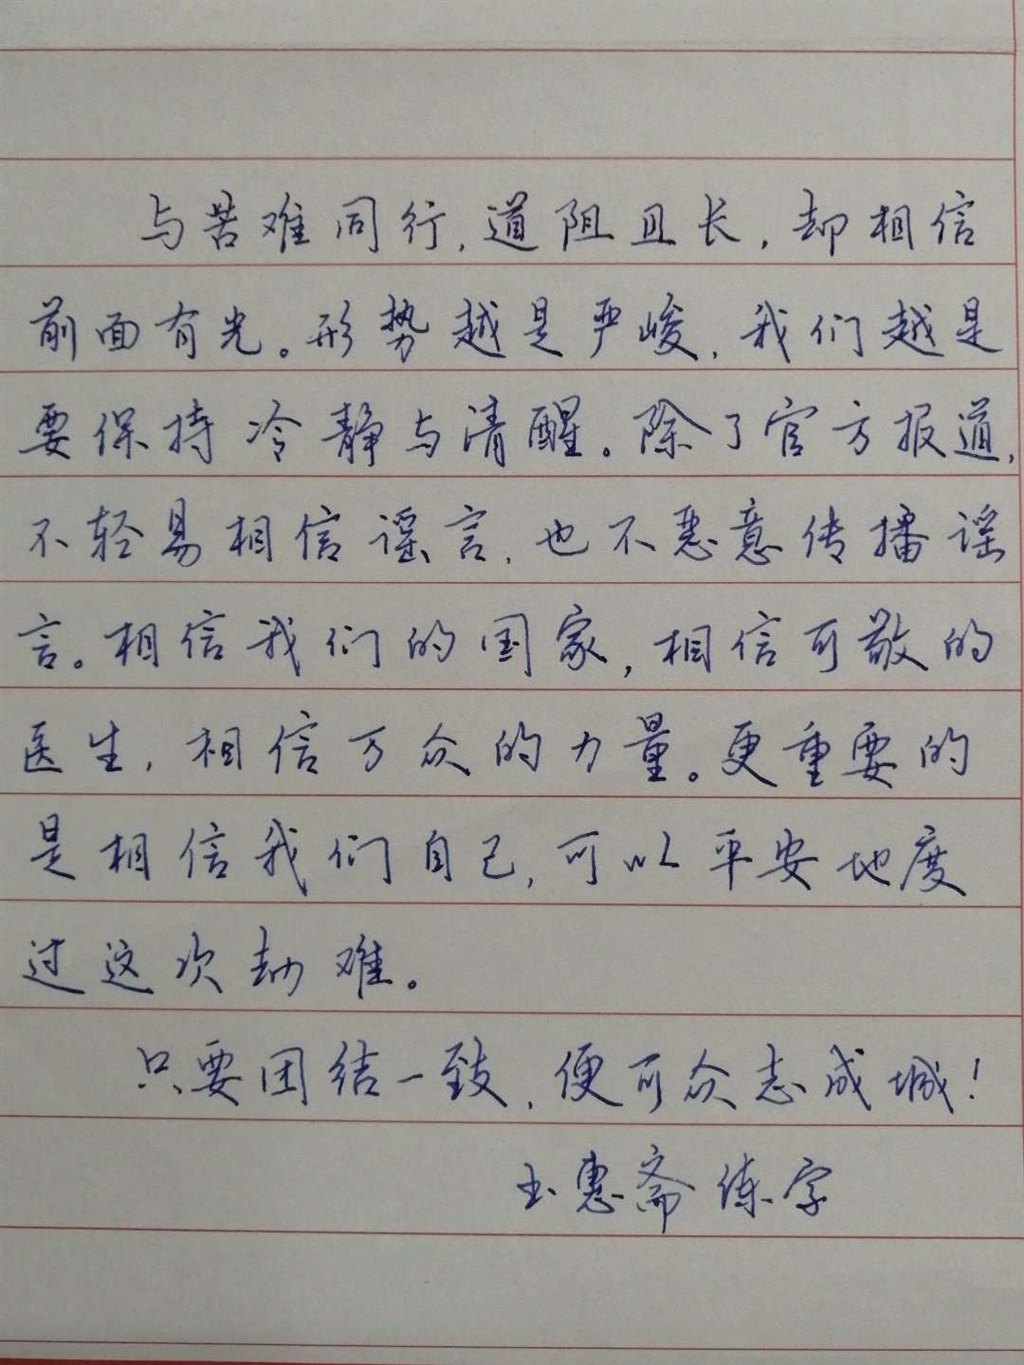 与苦难同行,道阻且长,却相信
前面有光。形势越是严峻,我们越是
要保持冷静与清醒。除了官方报道,
不轻易相信谣言,也不恶意传播谣
言。相信我们的国家,相信可敬的
医生,相信万众的力量。更重要的
是相信我们自己,可以平安地度
过这次劫难。
只要团结一致,便可众志成城!
玉惠斋练字